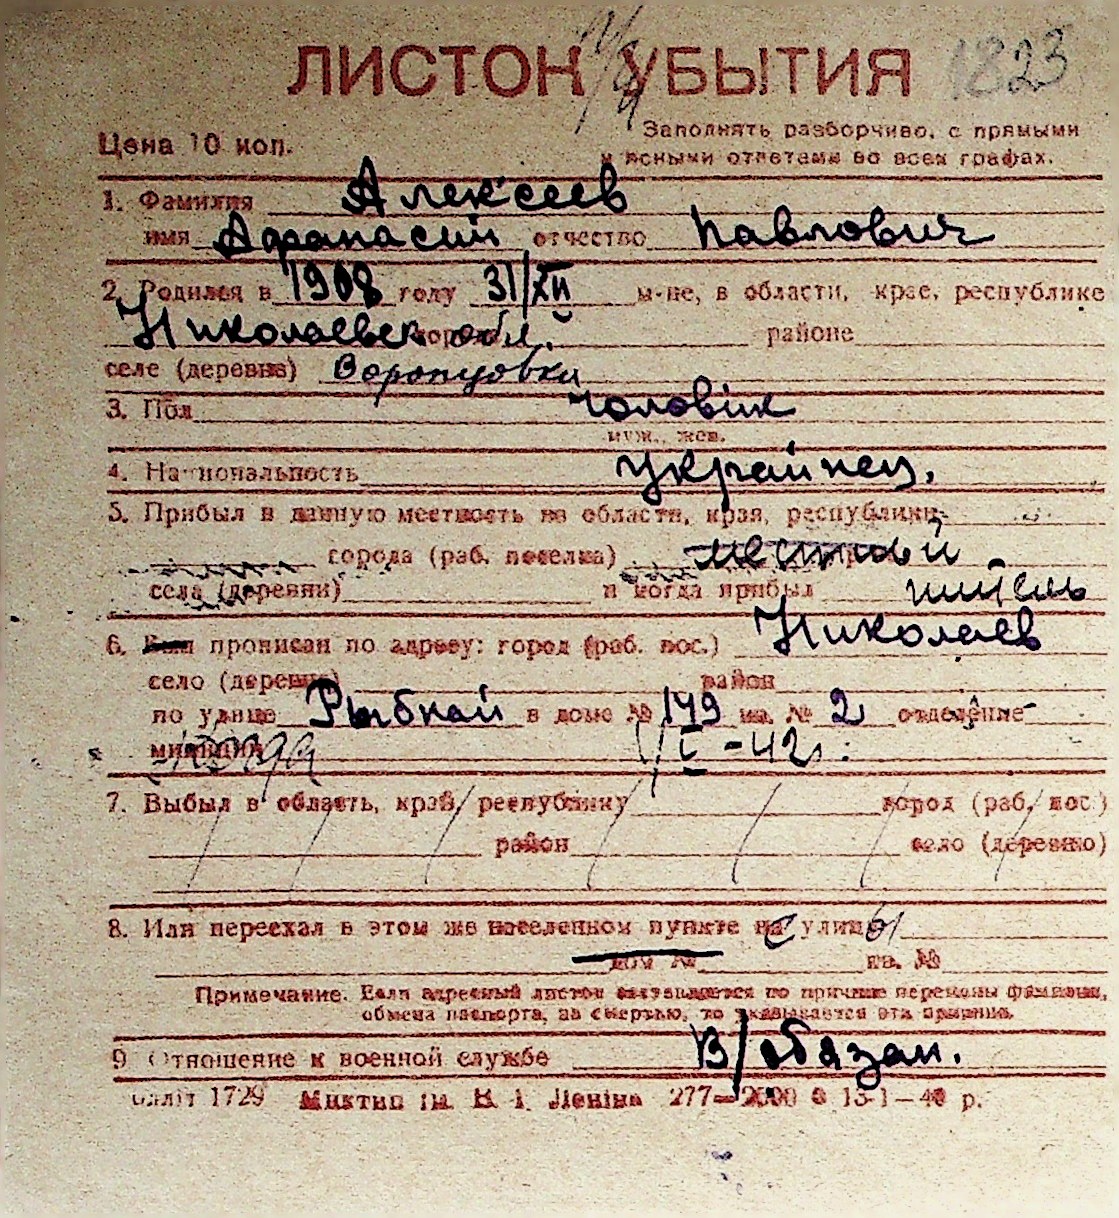 ЛИСТОК УБЫТИЯ 1823
Цена 10 коп.
Заполнять разборчиво, с прямыми
и ясными ответами во всех графах.
1. Фамилия Алексеев
имя Афанасий отчество Павлович
2. Родился в 1908 году 31/XII м-це, в области, крае, республике
Николаевск обл. районе
селе (деревне) Воронцовка
3. Пол чоловік
муж., жен.
4. Национальность украінец.
5. Прибыл в данную местность из области, края, республики
города (раб. поселка) местный
села (деревни) и когда прибыл житель
6. Был прописан по адресу: город (раб. пос.) Николаев
село (деревня) район
по улице Рыбной в доме № 149 кв. № 2 отделение
милиции I-42г.
7. Выбыл в область, край, республику город (раб. пос.)
район село (деревню)
8. Или переехал в этом же населенном пункте на с улицы
дом № кв. №
Примечание. Если адресный листок составляется по причине перемены фамилии,
обмена паспорта, за смертью, то указывается эта причина.
9 Отношение к военной службе В/обязан.
1729 Миктип ім. В. І. Леніна 277— 13-1—40 р.